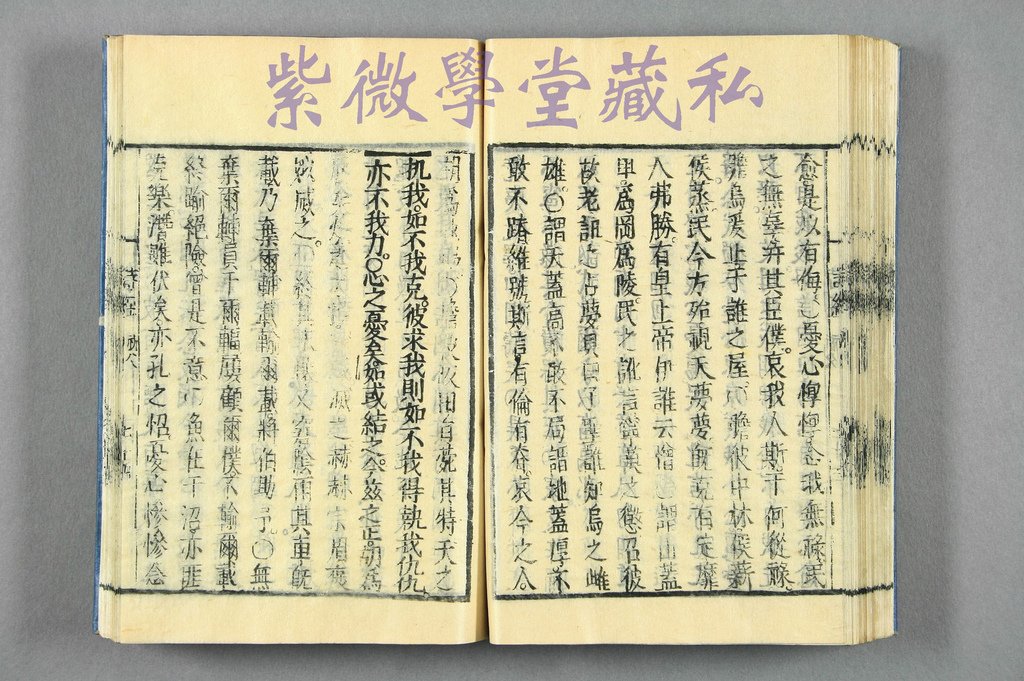 紫微學堂藏私
愈是以有侮○憂心惸惸念我無祿民
之無辜并其臣僕。哀我人斯于何從祿。
瞻烏爰止于誰之屋○瞻彼中林。侯薪
侯蒸。民今方殆視天夢夢既克有定靡
人弗勝。有皇上帝伊誰云憎○謂山蓋
卑爲岡爲陵。民之訛言寧莫之懲召彼
故老訊之占夢具曰予聖誰知烏之雌
雄。○謂天蓋高不敢不局謂地蓋厚不
敢不蹐維號斯言有倫有脊。哀今之人
胡爲虺蜴○瞻彼阪田有菀其特天之
扤我。如不我克。彼求我則如不我得執我仇仇
亦不我力。○心之憂矣如或結之。今茲之正。胡爲
滅之赫赫宗周褒
姒威之。○終其永懷又窘陰雨其車既
載乃棄爾輔載輸爾載將伯助予。○無
棄爾輔員于爾輻屢顧爾僕不輸爾載
終踰絕險曾是不意○魚在于沼。亦匪
克樂潛雖伏矣亦孔之炤憂心慘慘念
詩經